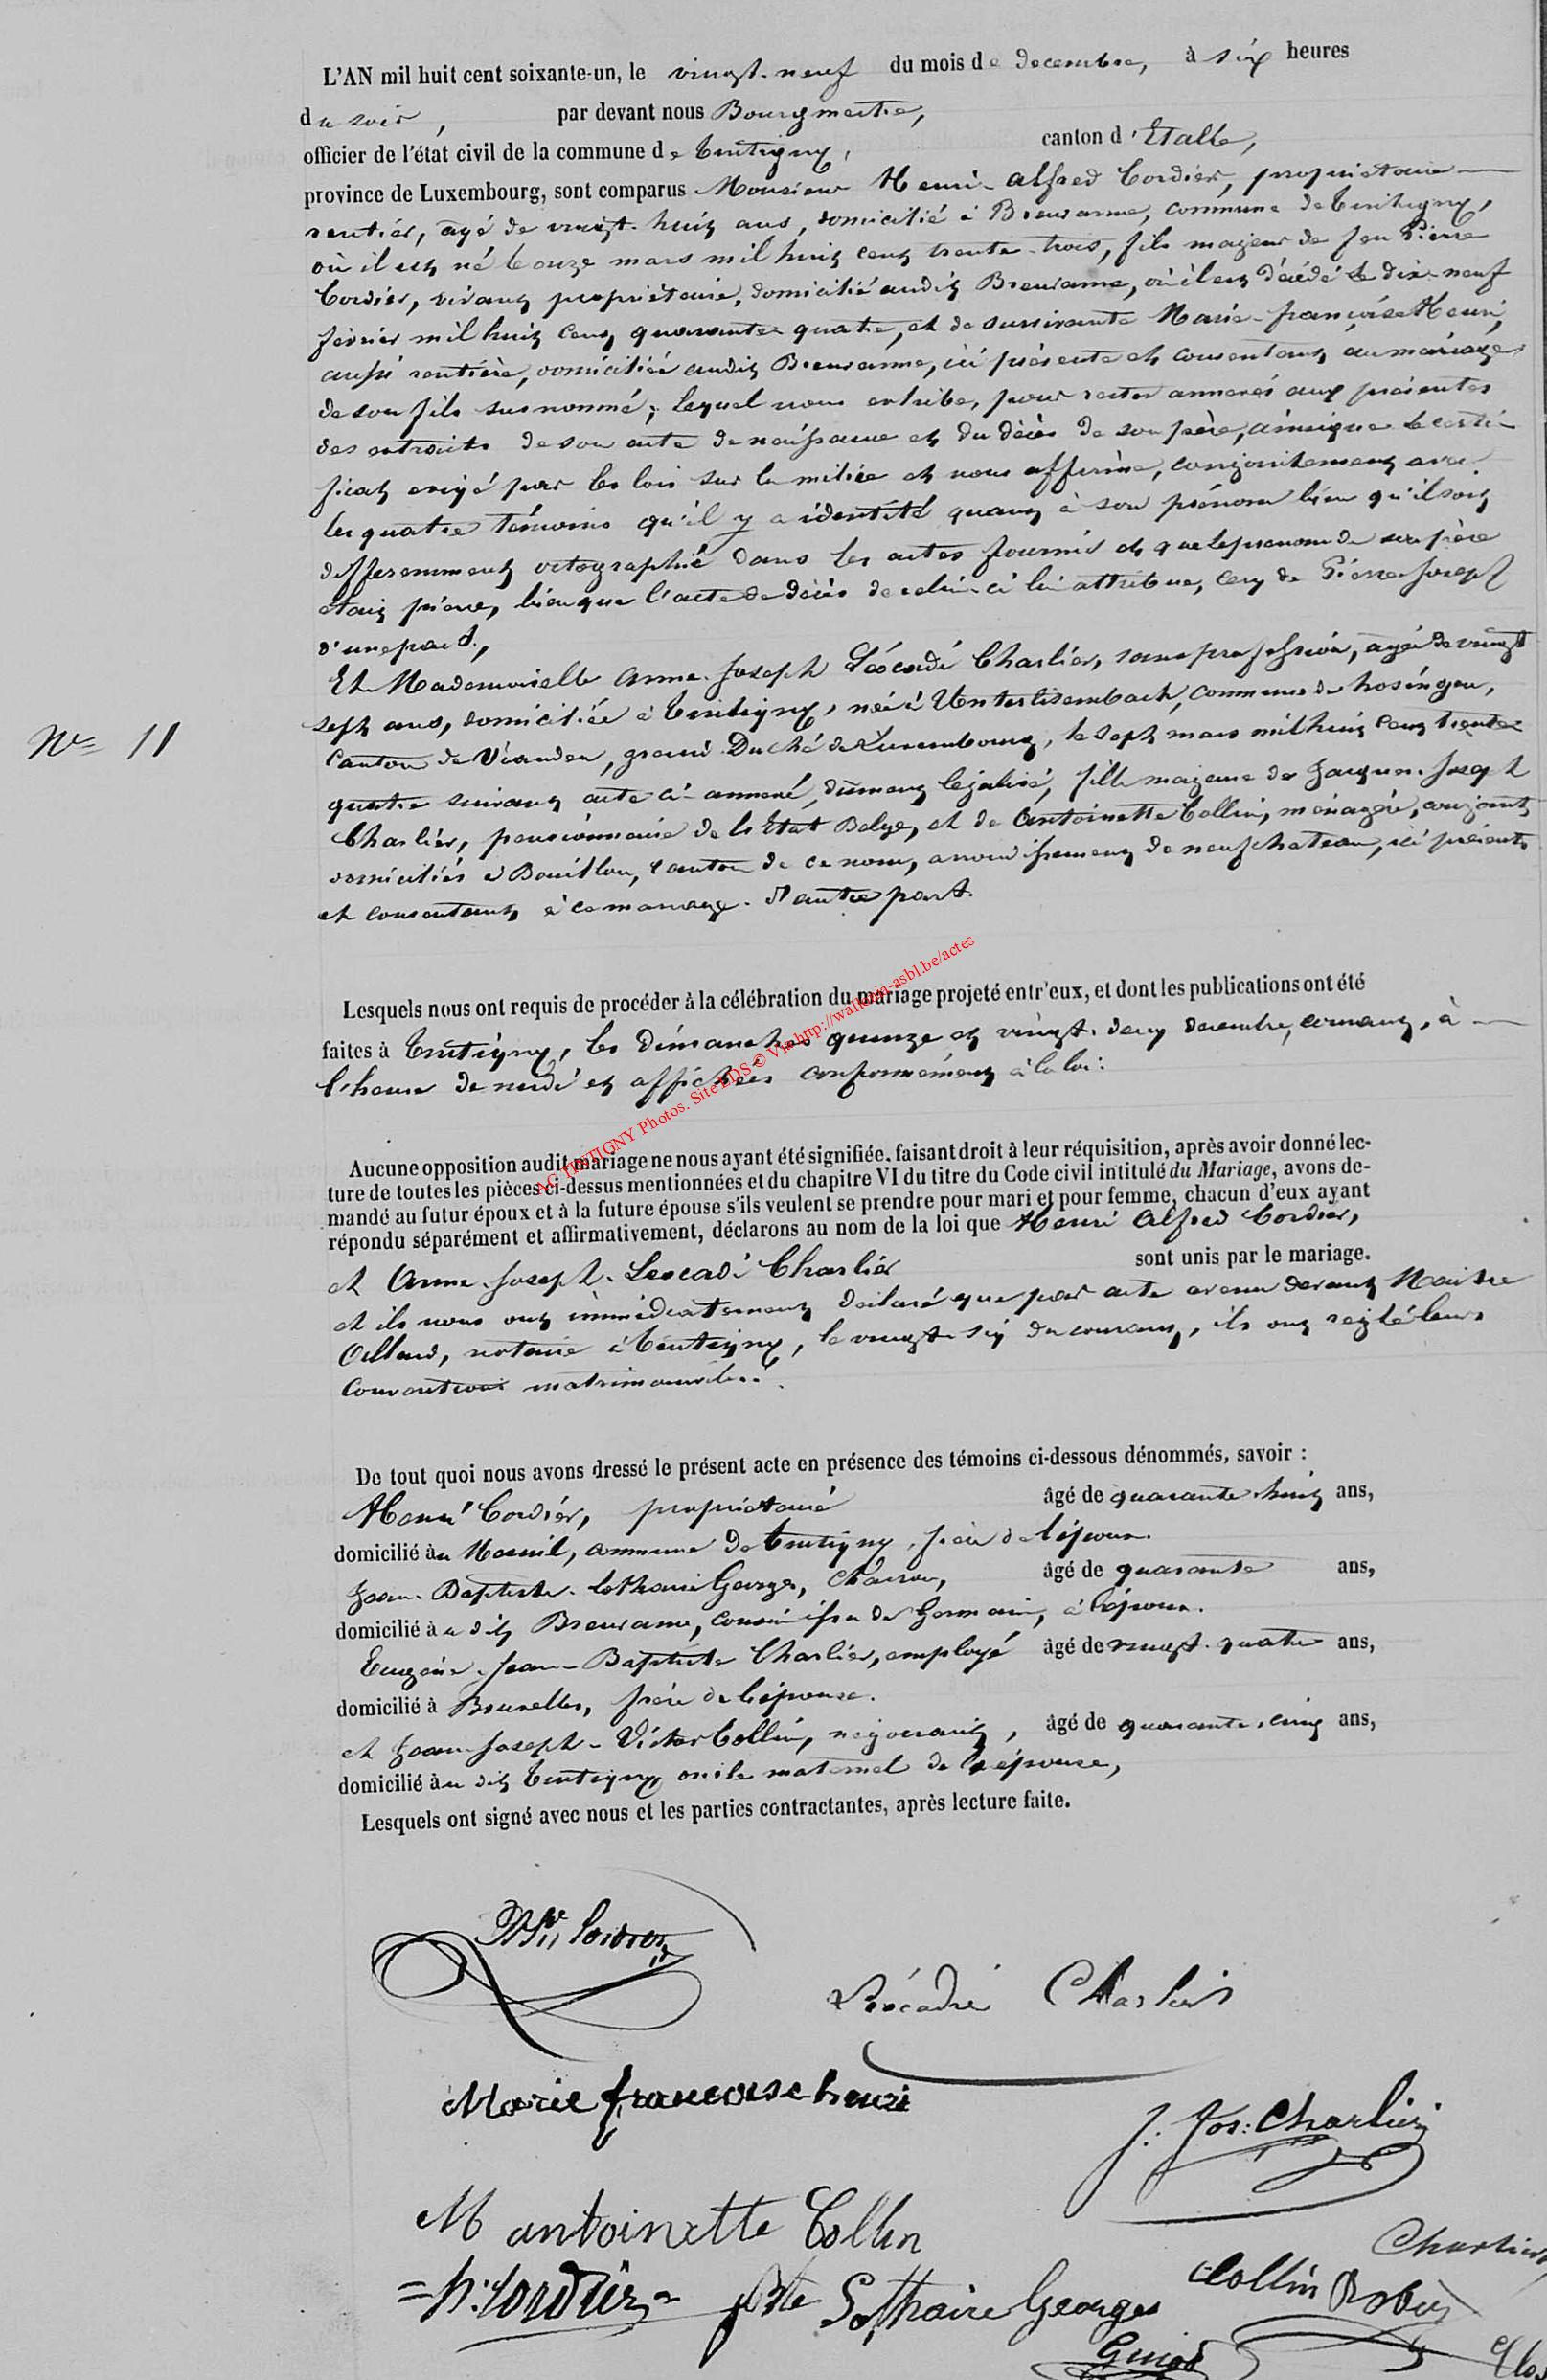 L'AN mil huit cent soixante-un, le vingt-neuf du mois de decembre, à six heures
du soir, par devant nous Bourgmestre,
officier de l'état civil de la commune de Tintigny, canton d'Etalle,
province de Luxembourg, sont comparus Monsieur Henri-Alfred Cordier, propriétaire
rentier, agé de vingt-huit ans, domicilié à Breuvanne, commune de Tintigny,
où il est né le onze mars mil huit cent trente-trois, fils majeur de feu Pierre
Cordier, vivant propriétaire, domicilié audit Breuvanne, où il est décédé le dix-neuf
fevrier mil huit cent quarante quatre, et de survivante Marie-françoise Henri,
aussi rentière, domiciliée audit Breuvanne, ici présente et consentant au mariage
de son fils susnommé; lequel nous exhibe, pour rester annexés aux présentes
des extraits de son acte de naissance et du décès de son père, ainsi que le certi-
ficat exigé par les lois sur la milice et nous affirme, conjointement avec
les quatre témoins qu'il y a identité quant à son prénom bien qu'il soit
differemment ortographié dans les actes fournis et que le prenom de son père
étais pierre, bien que l'acte de décès de celui-ci lui attribue, ceux de Pierre Joseph
d'une part,
Et Mademoiselle Anne-Joseph Léocadi Charlier, sans profession, agée de vingt
N° 11
sept ans, domiciliée à Tintigny, née à Untereisembach, commune de hosingen,
Canton de Vianden, grand Duché de Luxembourg, le sept mars mil huit cent trente
quatre suivant acte ci-annexé, dûment légalisé, fille majeure de Jacques-Joseph
Charlier, pensionnaire de l'Etat Belge, et de Antoinette Collin, ménagère, conjoints
domiciliés à Bouillon, canton de ce nom, arrondissement de neufchateau, ici présents
et consentants à ce mariage. D'autre part.
Lesquels nous ont requis de procéder à la célébration du mariage projeté entr'eux, et dont les publications ont été
faites à Tintigny, les dimanches quinze et vingt-deux decembre, courant, à
l'heure de midi et affichées conformément à la loi:
AC TINTIGNY Photos. Site BDS © Via http://wallonia-asbl.be/actes
Aucune opposition audit mariage ne nous ayant été signifiée. faisant droit à leur réquisition, après avoir donné lec-
ture de toutes les pièces ci-dessus mentionnées et du chapitre VI du titre du Code civil intitulé du Mariage, avons de-
mandé au futur époux et à la future épouse s'ils veulent se prendre pour mari et pour femme, chacun d'eux ayant
répondu séparément et affirmativement, déclarons au nom de la loi que Henri Alfred Cordier,
et Anne-Joseph-Leocadi Charlier sont unis par le mariage.
et ils nous ont immédiatement déclaré que par acte avenu devant Maitre
notaire à Tintigny, le vingt-six du courant, ils ont reglé leurs
Conventions matrimoniales.
De tout quoi nous avons dressé le présent acte en présence des témoins ci-dessous dénommés, savoir :
Henri Cordier, propriétaire âgé de quarante-huit ans,
domicilié au Mesnil, commune de Tintigny, frère de l'époux.
Jean-Baptiste-Lothaire Georges, Charron, âgé de quarante ans,
domicilié audit Breuvanne, cousin issu de Germain, à l'époux.
Eugène-Jean-Baptiste Charlier, employé âgé de vingt-quatre ans,
domicilié à Bruxelles, frère de l'épouse.
et Jean-Joseph-Victor Collin, négociant, âgé de quarante-cinq ans,
domicilié audit Tintigny oncle maternel de l'épouse,
Lesquels ont signé avec nous et les parties contractantes, après lecture faite.
Cordier
Léocadie Charlier
Marie françoise henri
J. Jos: Charlier
M antoinette Collin
Charlier
h: Cordier Bte Lothaire Georges Collin